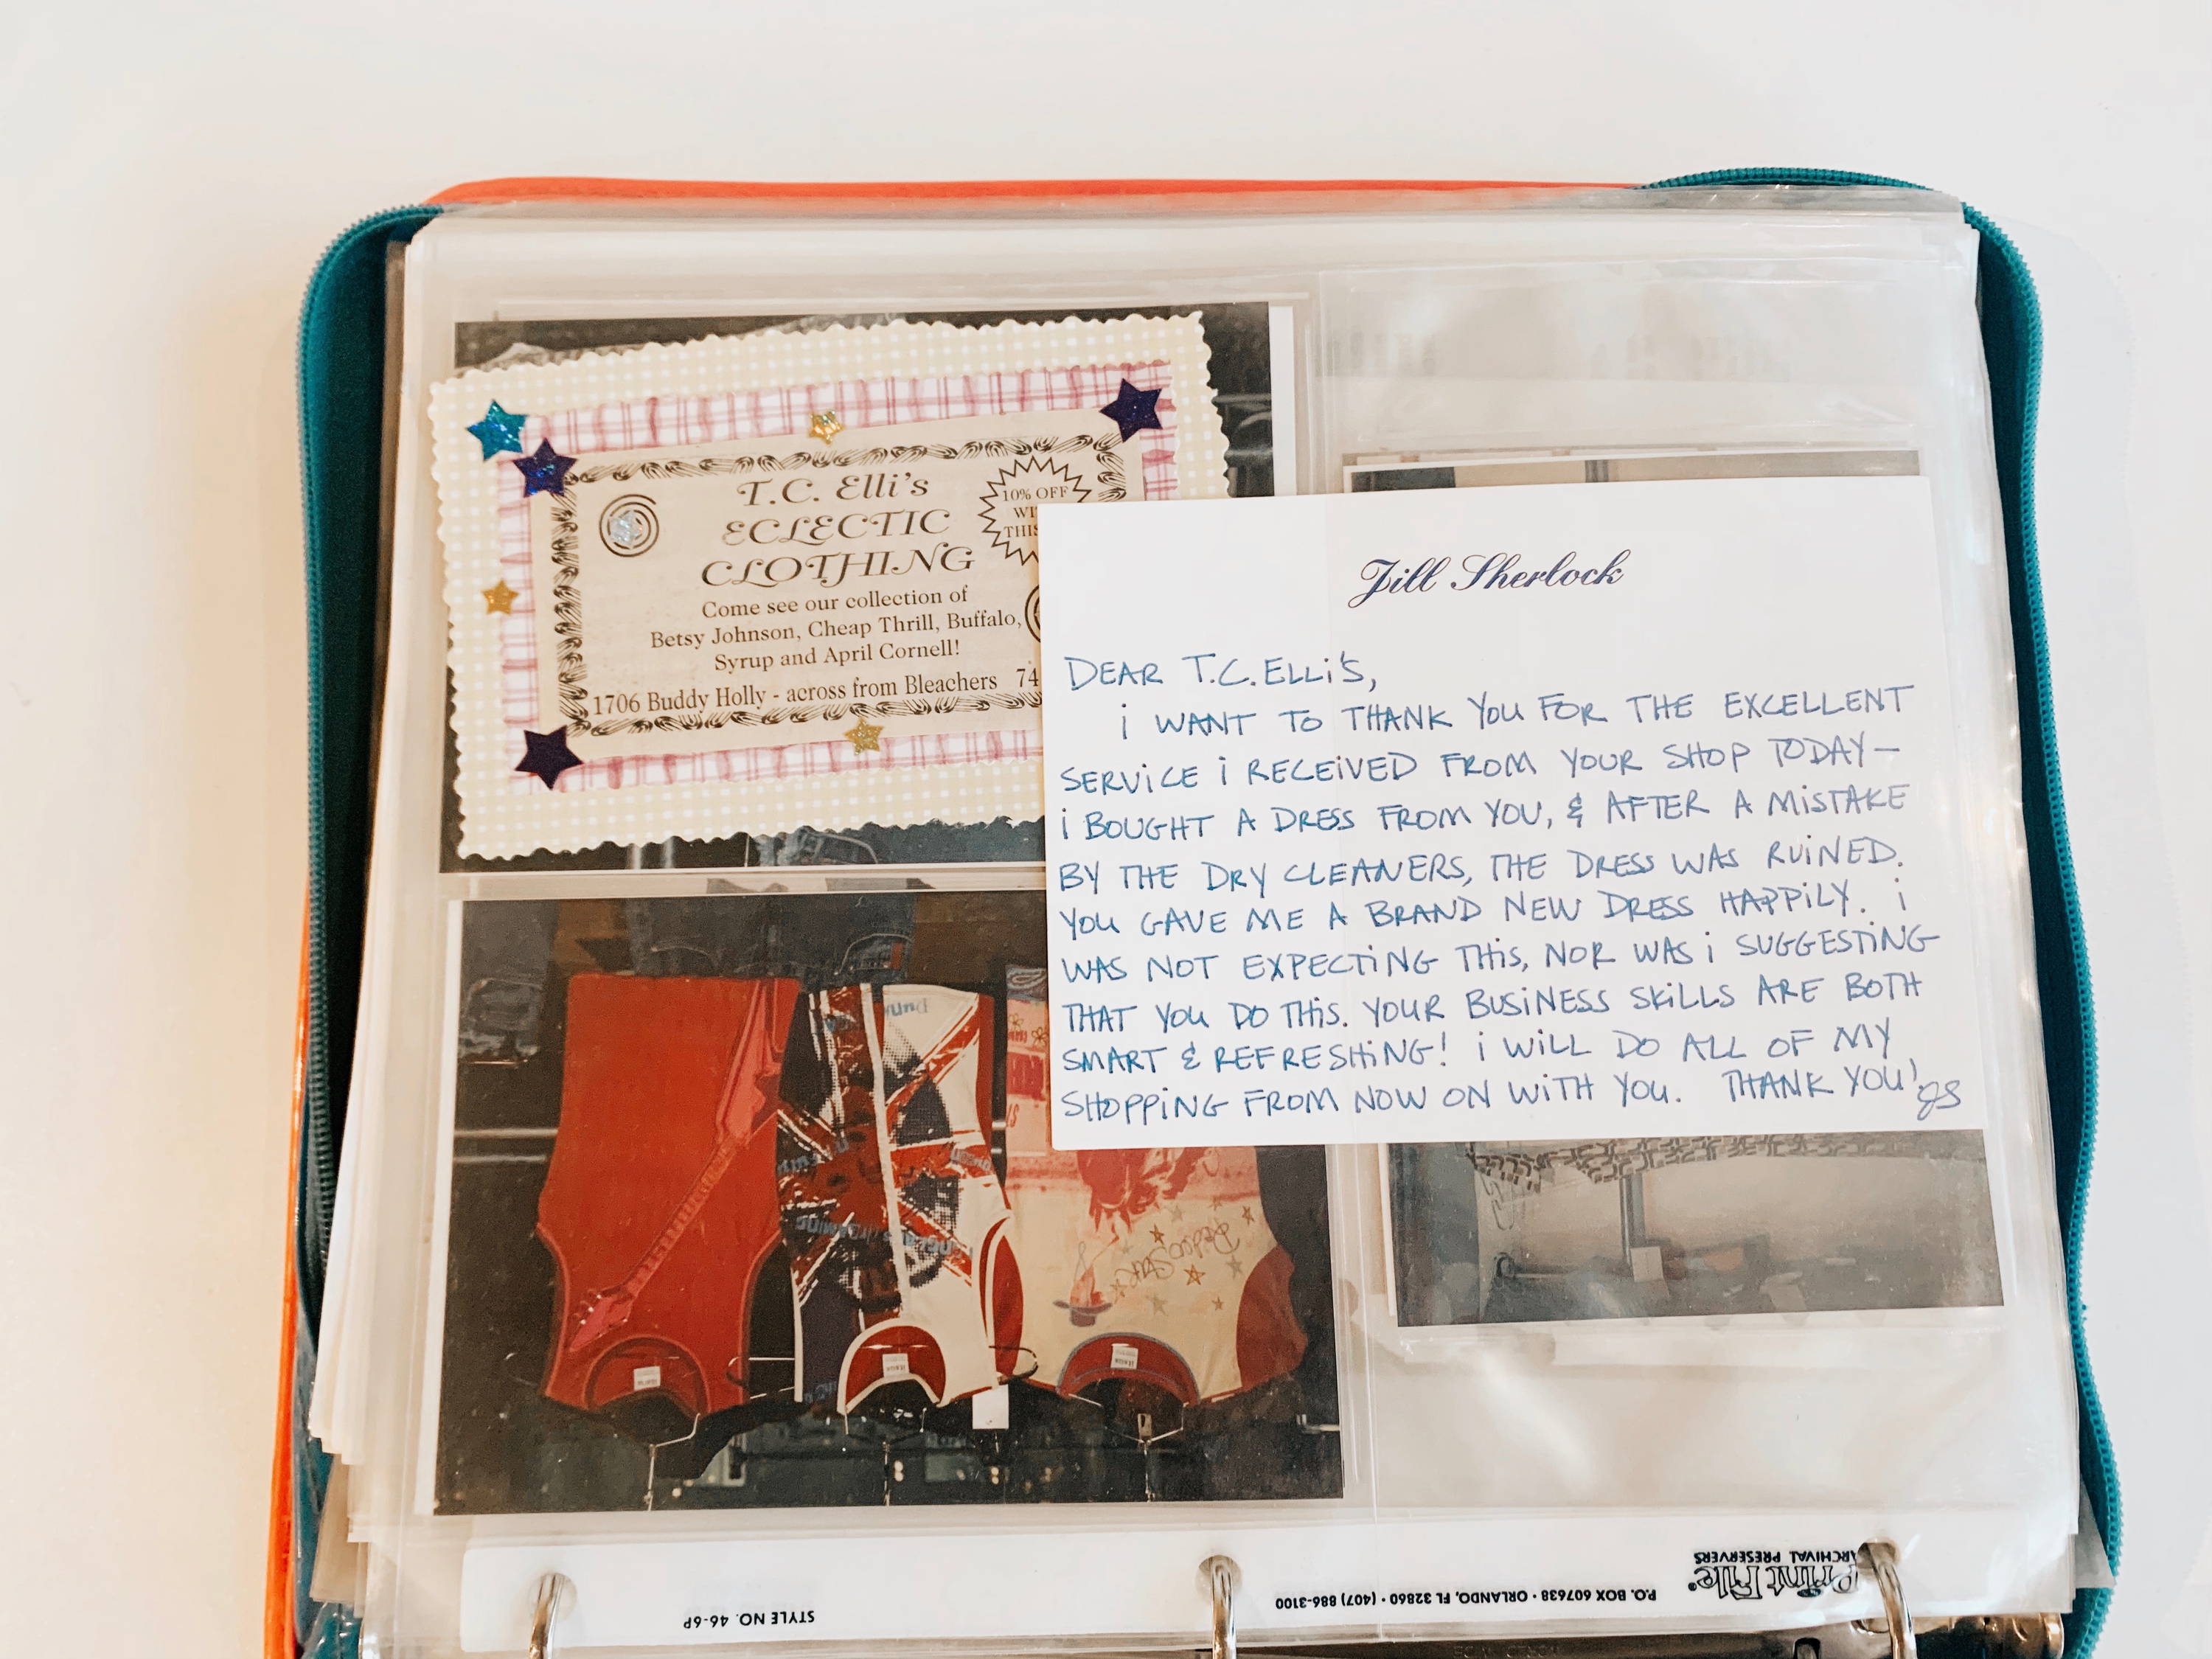 T.C. Elli's
ECLECTIC
CLOTHING
10% OFF
Come see our collection of
Betsy Johnson, Cheap Thrill, Buffalo,
Syrup and April Cornell!
1706 Buddy Holly - across from Bleachers 74
Jill Sherlock
DEAR T.C. ELLi'S,
i WANT TO THANK YOU FOR THE EXCELLENT
SERViCE i RECEiVED FROM YOUR SHOP TODAY—
i BOUGHT A DRESS FROM YOU, & AFTER A MiSTAKE
BY THE DRY CLEANERS, THE DRESS WAS RUiNED.
YOU GAVE ME A BRAND NEW DRESS HAPPiLY. i
WAS NOT EXPECTiNG THiS, NOR WAS i SUGGESTiNG
THAT YOU DO THiS. YOUR BUSiNESS SKiLLS ARE BOTH
SMART & REFRESHiNG! i WiLL DO ALL OF MY
SHOPPiNG FROM NOW ON WiTH YOU. THANK YOU! JS
STYLE NO. 46-6P
P.O. BOX 607638 • ORLANDO, FL 32860 • (407) 886-3100
Print File®
ARCHIVAL PRESERVERS